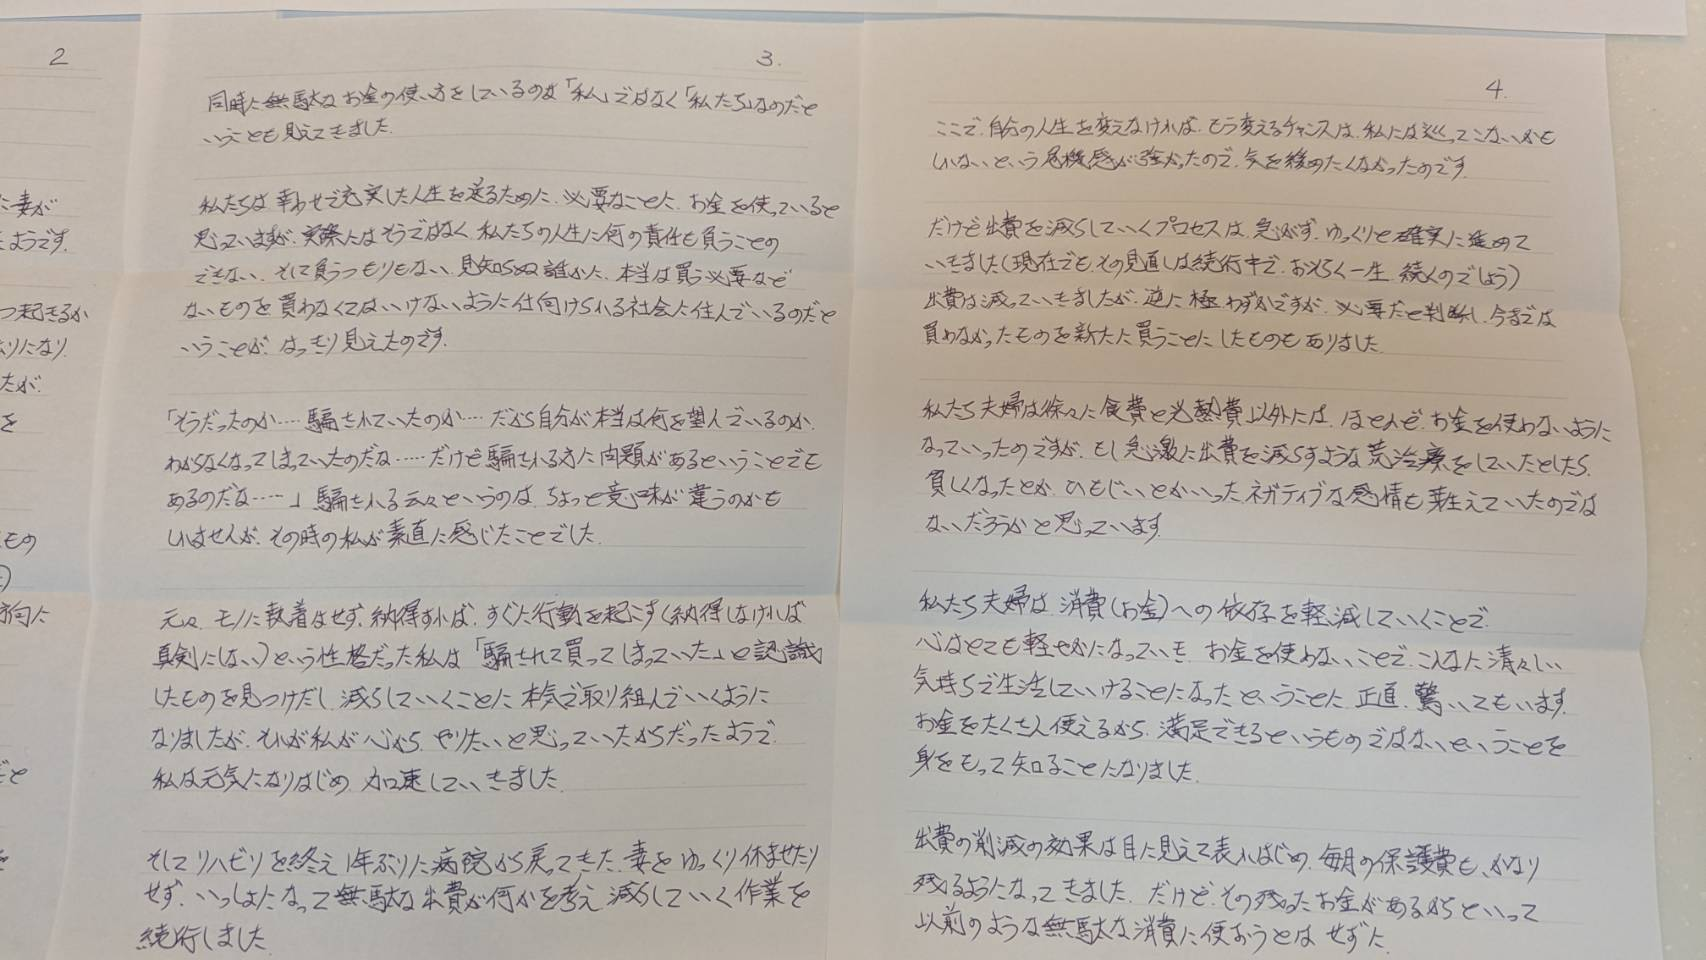 2
に妻が
ようです。
つ起きるか
りになり
たが、
を
もの
方向に
だと
を
3.
同時に無駄なお金の使い方をしているのは「私」ではなく「私たち」なのだと
いうことも見えてきました。
私たちは幸わせで充実した人生を送るために、必要なことに、お金を使っていると
思っていますが、実際にはそうではなく、私たちの人生に何の責任も負うことの
できない、そして負うつもりもない、見知らぬ誰かに、本当は買う必要など
ないものを買わなくてはいけないように仕向けられる社会に住んでいるのだと
いうことが、はっきり見えたのです。
「そうだったのか‥‥騙されていたのか‥‥だから自分が本当は何を望んでいるのか、
わからなくなってしまっていたのだな‥‥‥だけど騙される方に問題があるということでも
あるのだな‥‥‥」騙される云々というのは、ちょっと意味が違うのかも
しれませんが、その時の私が素直に感じたことでした。
元々、モノに執着はせず、納得すれば、すぐに行動を起こす(納得しなければ
真剣にしない)という性格だった私は「騙されて買ってしまっていた」と認識
したものを見つけだし、減らしていくことに本気で取り組んでいくように
なりましたが、それが私が心から、やりたいと思っていたからだったようで、
私は元気になりはじめ、加速していきました。
そしてリハビリを終え1年ぶりに病院から戻ってきた、妻をゆっくり休ませたり
せず、いっしょになって無駄な出費が何かを考え減らしていく作業を
続行しました。
4.
ここで、自分の人生を変えなければ、もう変えるチャンスは、私には巡ってこないかも
しれないという危機感が強かったので、気を緩めたくなかったのです。
だけど出費を減らしていくプロセスは、急がず、ゆっくりと確実に進めて
いきました(現在でも、その見直しは続行中で、おそらく一生、続くのでしょう)
出費は減っていきましたが、逆に極わずかですが、必要だと判断し、今までは
買わなかったものを新たに買うことにしたものもありました。
私たち夫婦は徐々に食費と光熱費以外には、ほとんど、お金を使わないように
なっていったのですが、もし急激に出費を減らすような荒治療をしていたとしたら、
貧しくなったとか、ひもじいとかいった、ネガティブな感情も芽生えていたのでは
ないだろうかと思っています。
私たち夫婦は、消費(お金)への依存を軽減していくことで、
心はとても軽やかになっていき、お金を使わないことで、こんなに清々しい
気持ちで生活していけることになったということに、正直、驚いてもいます。
お金をたくさん使えるから、満足できるというものではないということを
身をもって知ることになりました。
出費の削減の効果は目に見えて表れはじめ、毎月の保護費も、かなり
残るようになってきました。だけど、その残ったお金があるからといって
以前のような無駄な消費に使おうとはせずに、